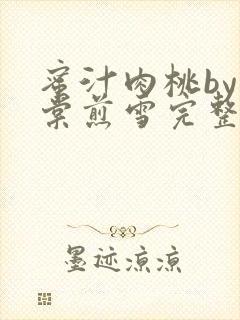 蜜汁肉桃by
棠煎雪完整
墨迹凉凉